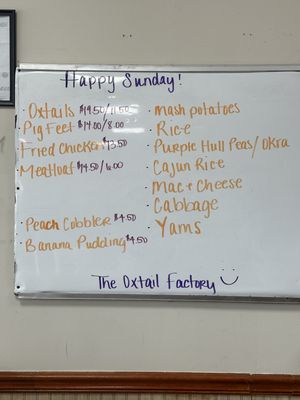 Happy Sunday!
· Oxtails
· Pig Feet $14.00/8.00
Fried Chicken $13.50
· Meatloaf $14.50/
· Peach Cobbler $4.50
· Banana Pudding $4.50
· mash potatoes
· Rice
· Purple Hull Peas/Okra
· Cajun Rice
· Mac + Cheese
· Cabbage
· Yams
The Oxtail Factory